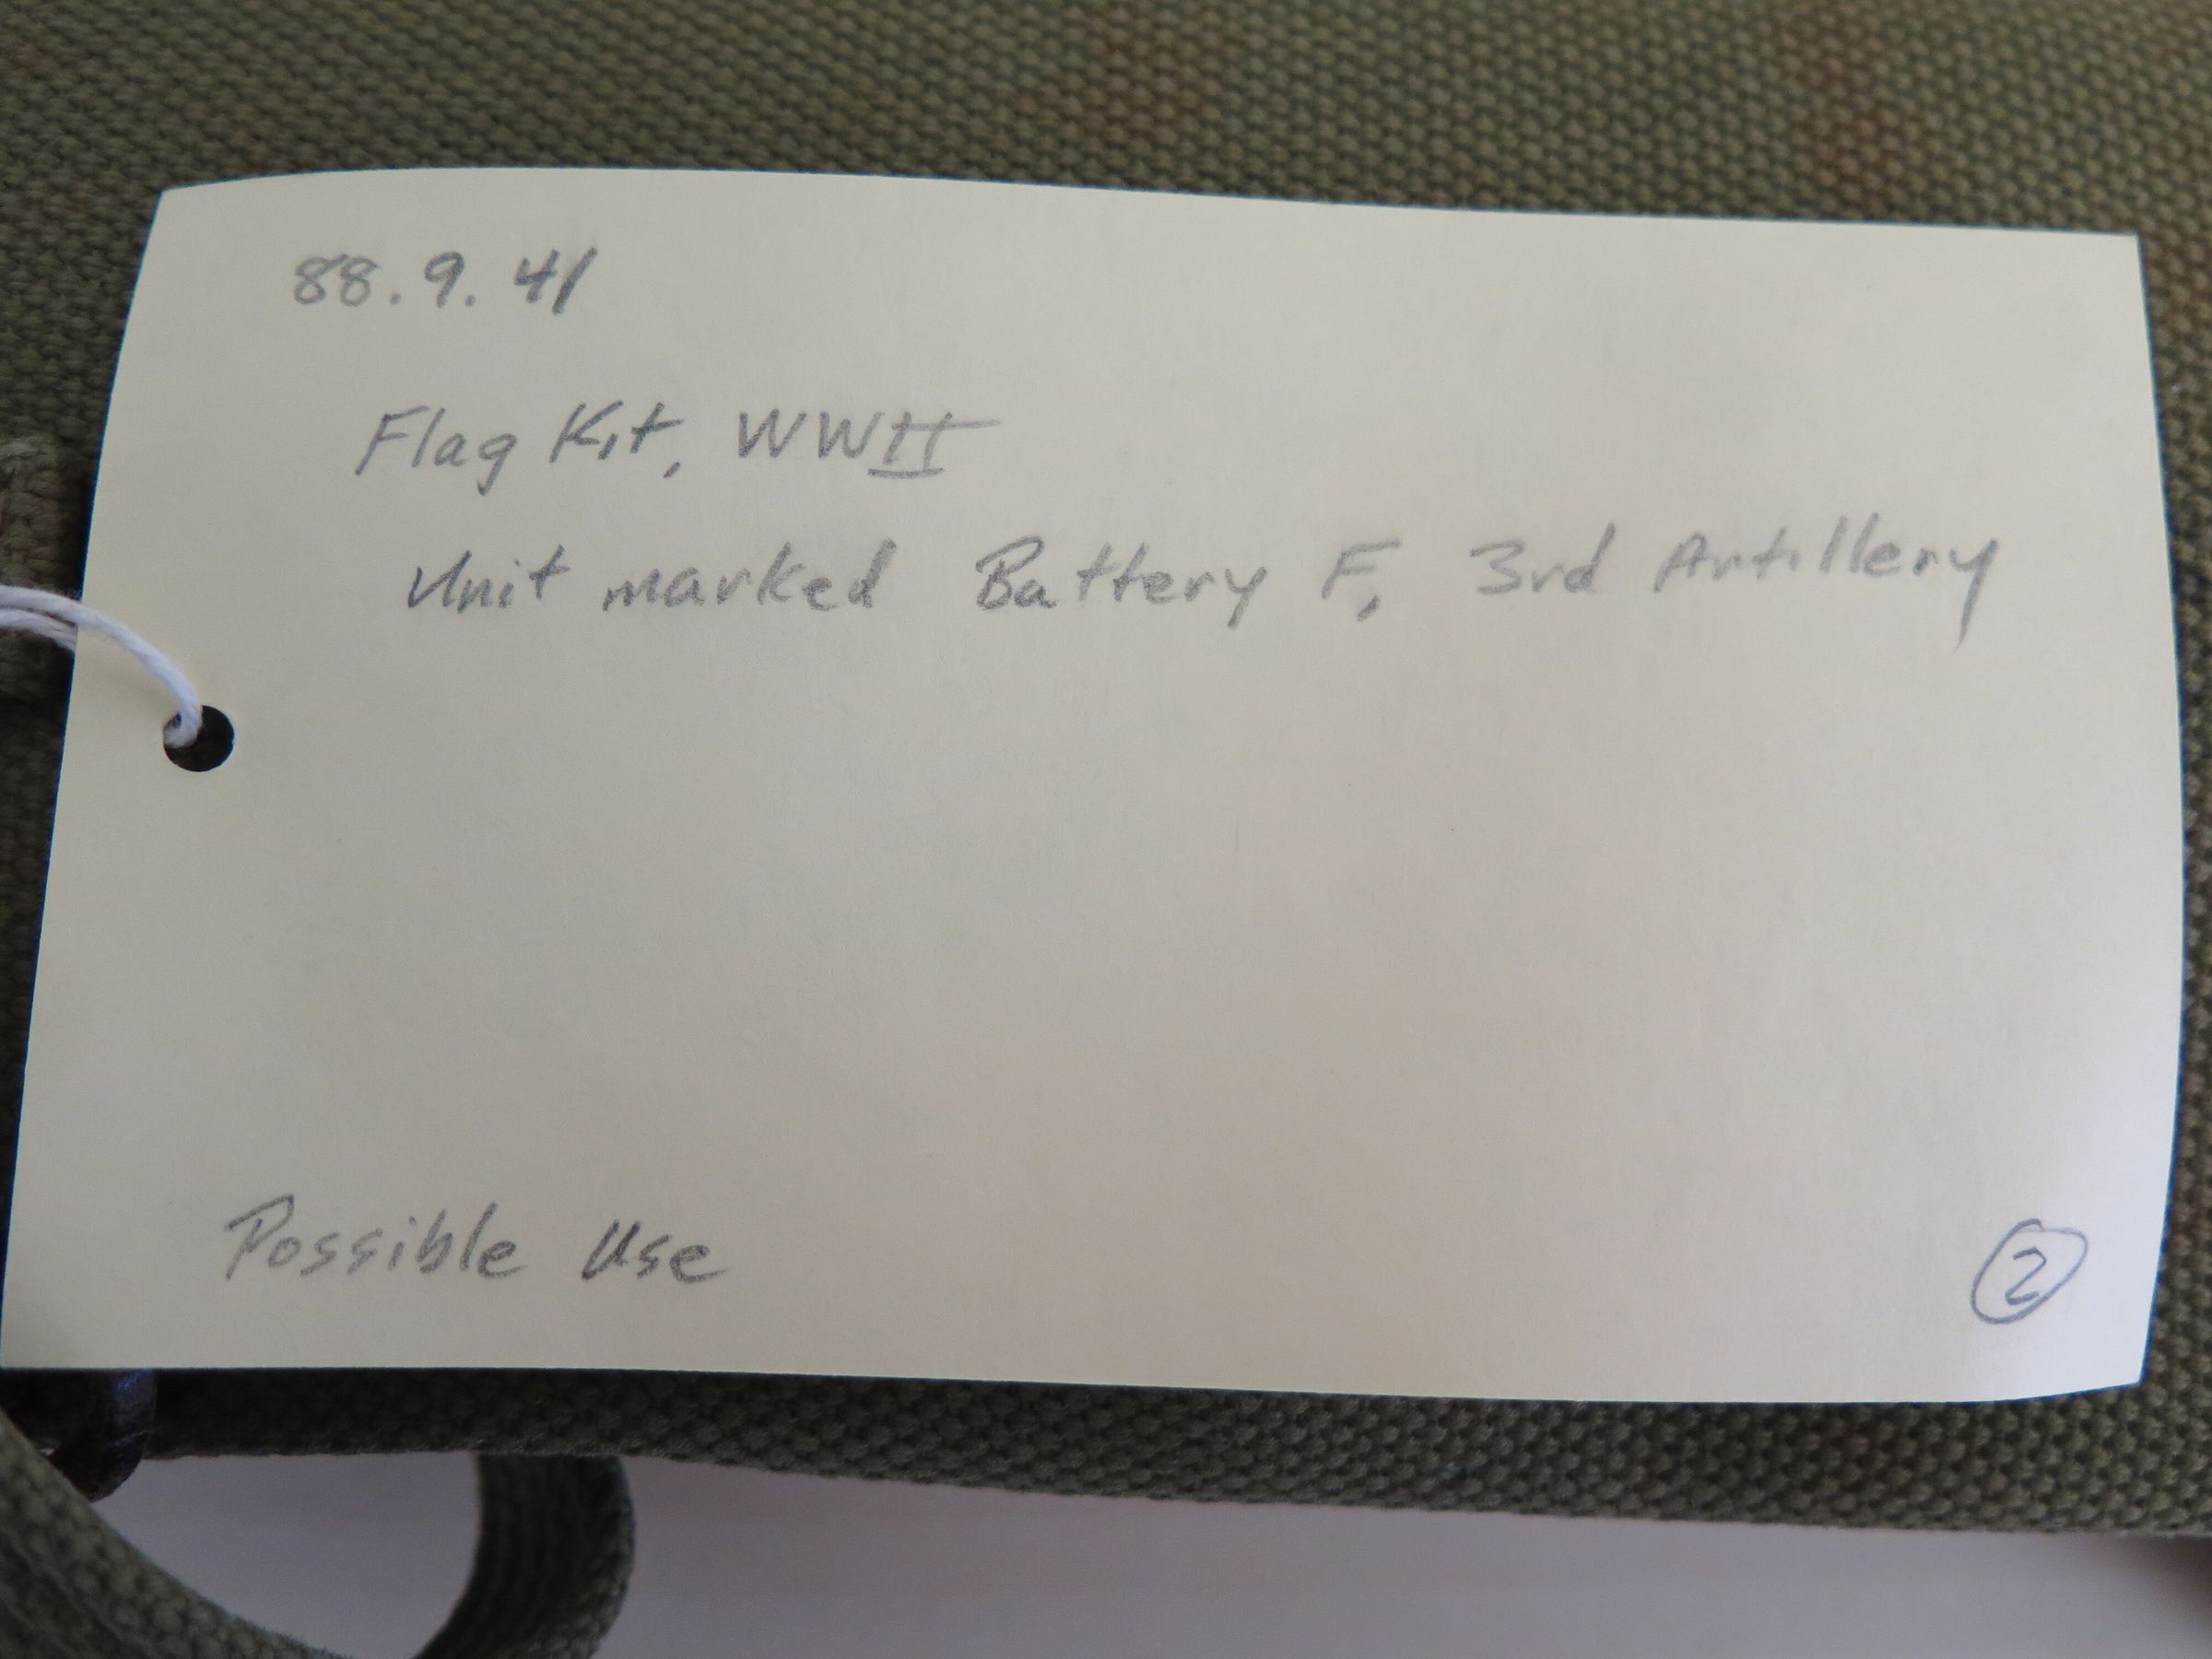 88.9.41
Flag Kit, WWII
Unit marked Battery F, 3rd Artillery
Possible Use
2